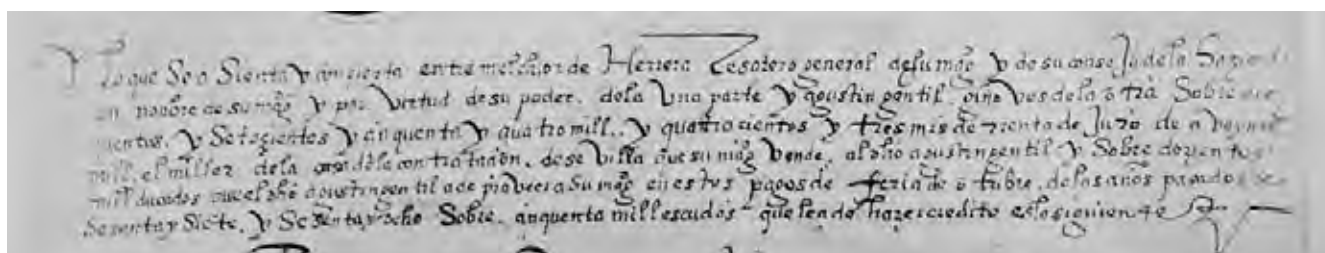 Lo que Se a Sienta y concierta entre melchior de Herrera Tesorero general de su mag^d y de su consejo de la hazienda
en nonbre de su mag^d y por Virtud de su poder. de la Una parte y agustin gentil ginoves de la otra Sobre
cuentos. y Setecientos y cinquenta y quatro mill. y quatrocientos y tres mrs de rrenta de Juro de a veynte
mill. el millar de la casa de la contrataçion. de se villa que su mag^d Vende. al dho agustin gentil y Sobre dozientos
mil ducados que el dho agustin gentil a de proveer a Su mag^d en estos pagos de feria de otubre. de los años pasados de
Sesenta y Siete. y Sesenta y ocho Sobre. cinquenta mill escudos que le a de hazer credito es lo siguiente